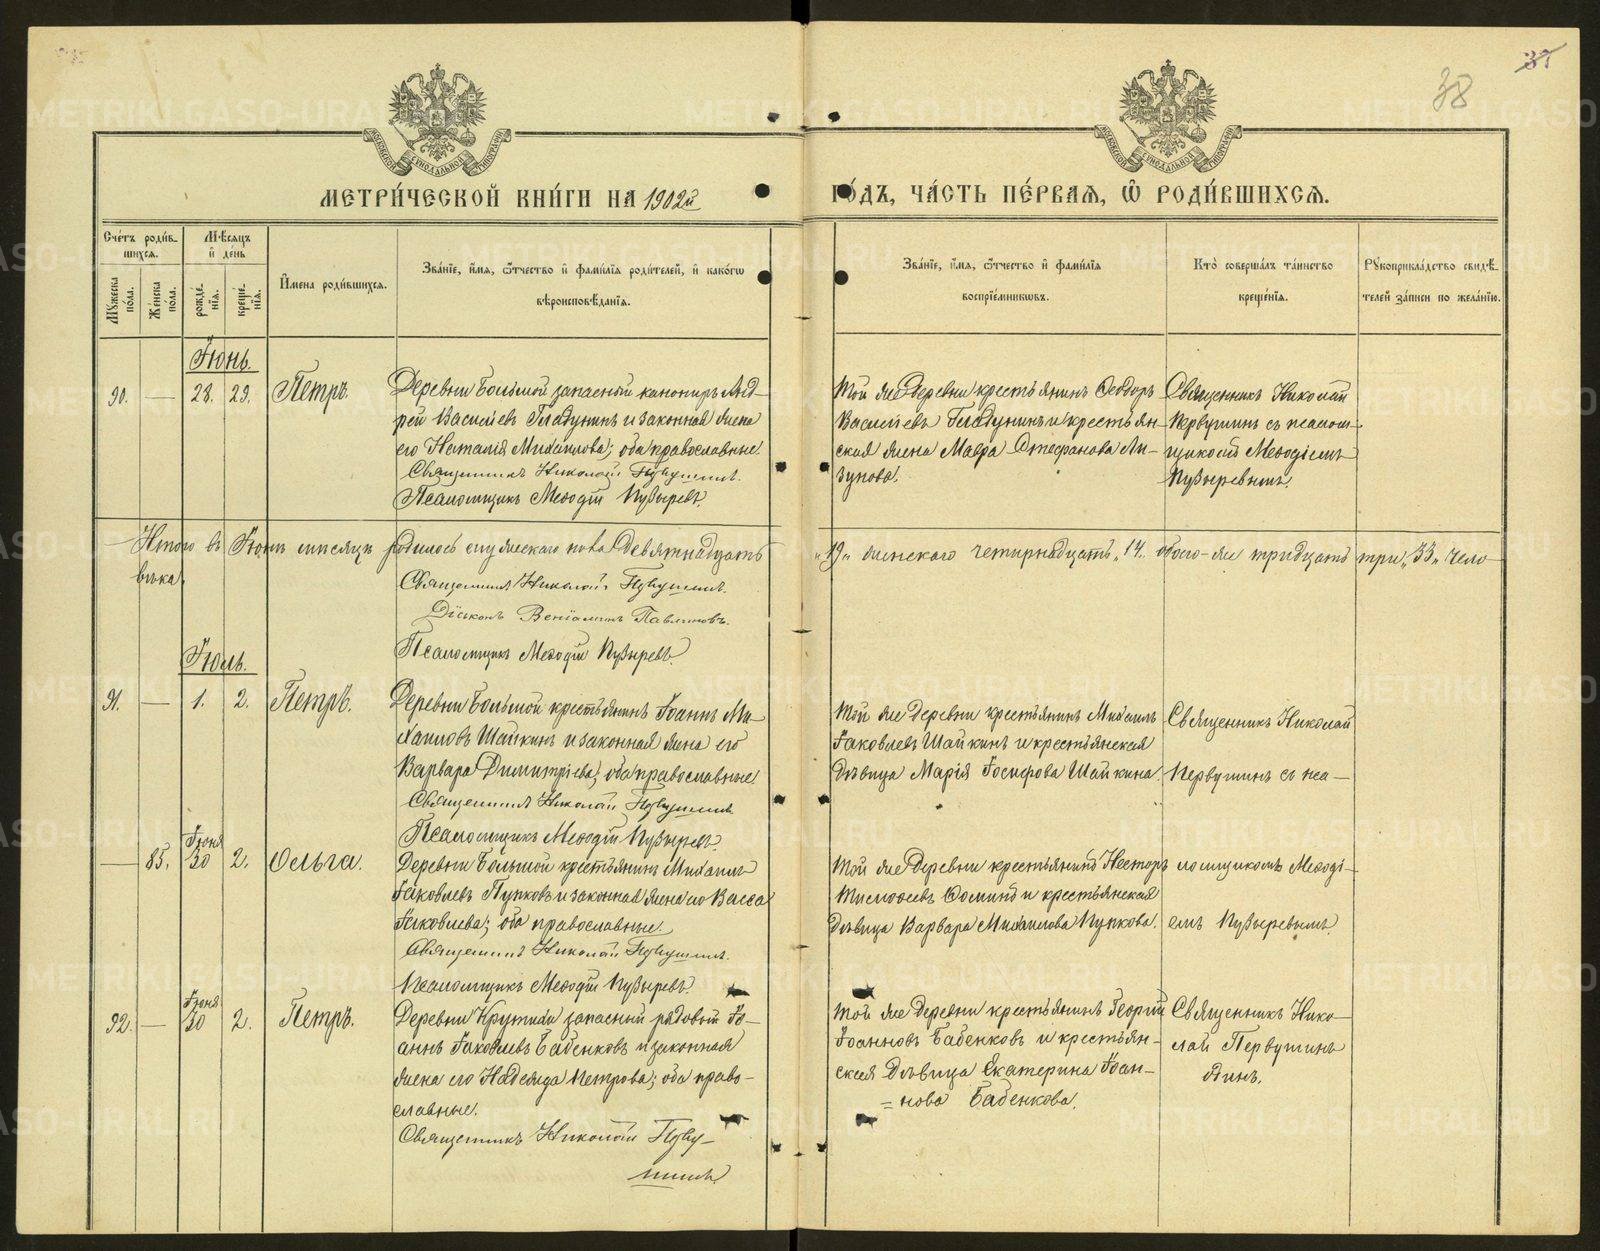 37
38
МОСКОВСКОЙ СѴНОДАЛЬНОЙ ТИПОГРАФІИ
МОСКОВСКОЙ СѴНОДАЛЬНОЙ ТИПОГРАФІИ
МЕТРИ́ЧЕСКОЙ КНИ́ГИ НА 1902й
ГО́ДЪ, ЧА́СТЬ ПЕ́РВАЯ, Ѽ РОДИ́ВШИХСЯ.
Сче́тъ роди́в-
шихся.
Му́жеска по́ла.
Же́нска по́ла.
Мѣ́сяцъ и҆ де́нь
рожде́нїя.
креще́нїя.
И҆мена роди́вшихся.
Зва́нїе, и҆́мя, ѻ҆́тчество и҆ фами́лїя роди́телей, и҆ како́гѡ
вѣроисповѣ́данїя.
Зва́нїе, и҆́мя, ѻ҆́тчество и҆ фами́лїя
воспрїе́мникѡвъ.
Кто̀ соверша́лъ та́инство
креще́нїя.
Рꙋкоприкла́дство свидѣ́-
телей за́писи по жела́нїю.
Іюнь.
90. — 28. 29. Петръ.
Деревни Большой запасный канониръ Анд-
рей Васильевъ Гладунинъ и законная жена
его Наталія Михаилова; оба православные.
Священникъ Николай Первушинъ.
Псаломщикъ Меѳодій Пузыревъ.
Той же деревни крестьянинъ Ѳеодоръ
Васильевъ Гладунинъ и крестьян-
ская жена Мавра Стефанова Ли-
зунова.
Священникъ Николай
Первушинъ съ псалом-
щикомъ Меѳодіемъ
Пузыревымъ.
Итого въ Іюнѣ мѣсяцѣ родилось мужескаго пола девятнадцать „19„ женскаго четырнадцать „14„ обоего-же тридцать три „33„ чело-
вѣка.
Священникъ Николай Первушинъ.
Діаконъ Веніаминъ Павлиновъ.
Псаломщикъ Меѳодій Пузыревъ.
Іюль.
91. — 1. 2. Петръ.
Деревни Большой крестьянинъ Іоаннъ Ми-
хаиловъ Шайкинъ и законная жена его
Варвара Димитріева; оба православные.
Священникъ Николай Первушинъ.
Псаломщикъ Меѳодій Пузыревъ.
Той же деревни крестьянинъ Михаилъ
Іаковлевъ Шайкинъ и крестьянская
дѣвица Марія Іосифова Шайкина.
Священникъ Николай
Первушинъ съ пса-
— 85. Іюня 30 2. Ольга.
Деревни Большой крестьянинъ Михаилъ
Іаковлевъ Пупковъ и законная жена его Васса
Іаковлева; оба православные.
Священникъ Николай Первушинъ.
Псаломщикъ Меѳодій Пузыревъ.
Той же деревни крестьянинъ Несторъ
Тимоѳеевъ Ѳоминъ и крестьянская
дѣвица Варвара Михаилова Пупкова.
ломщикомъ Меѳоді-
емъ Пузыревымъ.
92. — Іюня 30 2. Петръ.
Деревни запасный рядовый Іо-
аннъ Іаковлевъ Бабенковъ и законная
жена его Надежда Петрова; оба право-
славные.
Священникъ Николай Перву-
шинъ.
Той же деревни крестьянинъ Георгій
Іоанновъ Бабенковъ и крестьян-
ская дѣвица Екатерина Іоан-
= нова Бабенкова.
Священникъ Нико-
лай Первушинъ
одинъ.
METRIKI.GASO-URAL.RU